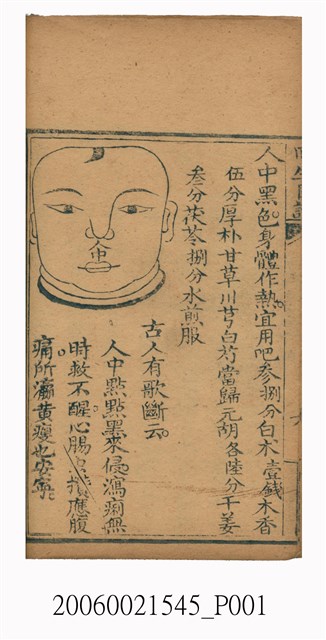 人中黑色身體作熱宜用吧參捌分白朮壹錢木香
伍分厚朴甘草川芎白芍當歸元胡各陸分干姜
叁分茯苓捌分水煎服
人中
古人有歌斷云
人中點點黑來侵瀉痢無
時救不醒心腸 應腹
痛所瀉黃瘦也安寧
20060021545_P001